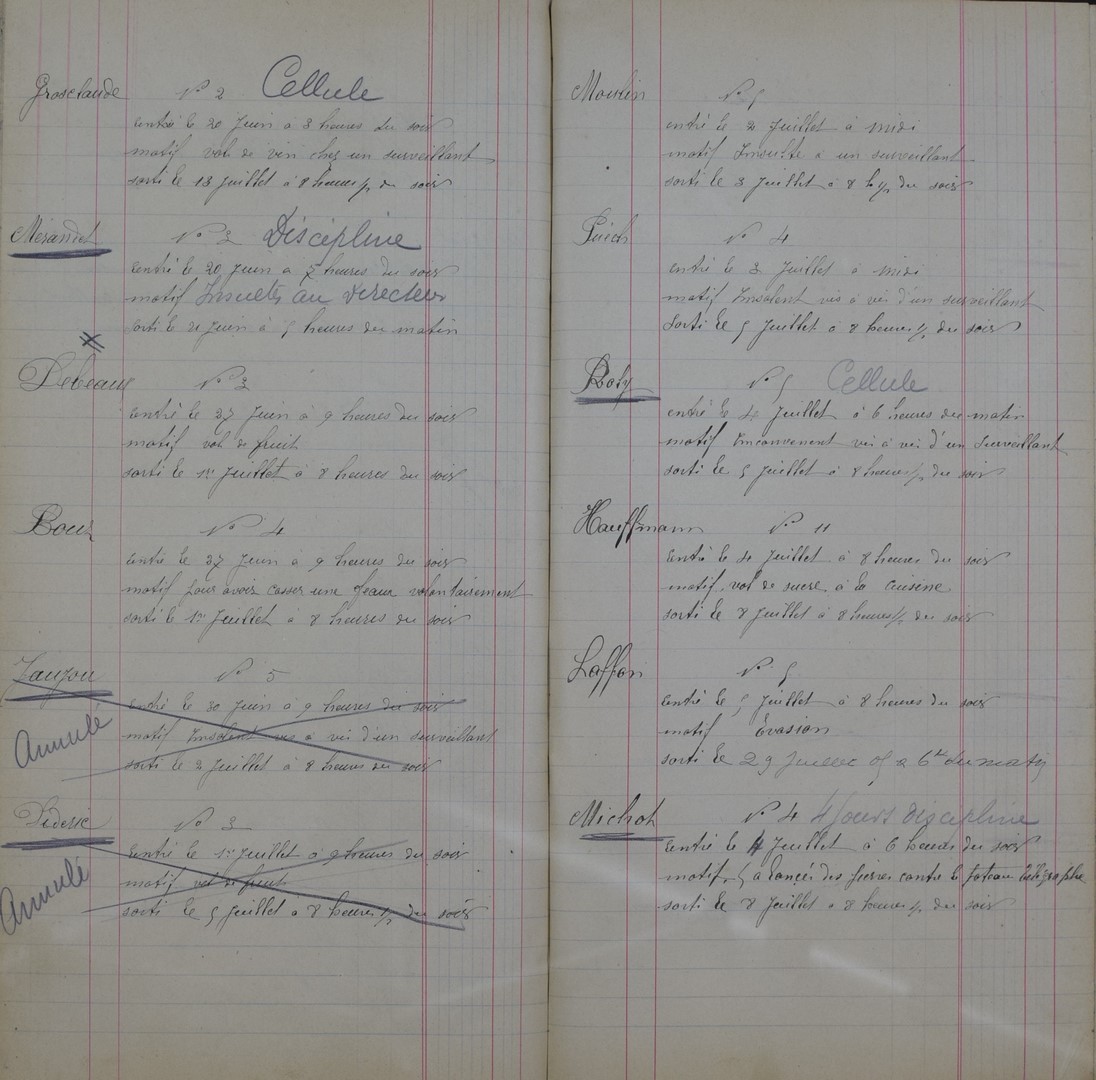 Grosclaude N° 2 Cellule
entré le 20 Juin à 8 heures du soir
motif vol de vin chez un surveillant
sorti le 13 Juillet à 8 heures ½ du soir
N° 3 Discipline
entré le 20 Juin à 7 heures du soir
motif Insultes au Directeur
sorti le 21 Juin à 5 heures du matin
Lebeau N° 3
entré le 27 Juin à 9 heures du soir
motif vol de fruit
sorti le 1er Juillet à 8 heures du soir
Bour N° 4
entré le 27 Juin à 9 heures du soir
motif pour avoir casser une veaux volontairement
sorti le 1er Juillet à 8 heures du soir
N° 5
Annulé
entré le 30 Juin à 9 heures du soir
motif Insolent vis à vis d'un surveillant
sorti le 2 Juillet à 8 heures du soir
N° 3
Annulé
entré le 1er Juillet à 9 heures du soir
motif vol de fruit
sorti le 5 Juillet à 8 heures ½ du soir
Moulin N° 5
entré le 2 Juillet à midi
motif Insulte à un surveillant
sorti le 3 Juillet à 8 h ½ du soir
Puech N° 4
entré le 3 Juillet à midi
motif Insolent vis à vis d'un surveillant
Sorti le 5 Juillet à 8 heures ½ du soir
Roty N° 5 Cellule
entré le 4 Juillet à 6 heures du matin
motif Inconvenent vis à vis d'un Surveillant
sorti le 5 Juillet à 8 heures ½ du soir
Hauffmann N° 11
entré le 4 Juillet à 8 heures du soir
motif vol de sucre à la cuisine
sorti le 8 Juillet à 8 heures ½ du soir
Laffon N° 5
entré le 5 Juillet à 8 heures du soir
motif Evasion
sorti le 29 Juillet à 6h du matin
Michot N° 4 4 Jours Discipline
entré le 4 Juillet à 6 heures du soir
motif à lancé des pierres contre le poteau télégraphe
sorti le 8 Juillet à 8 heures ½ du soir